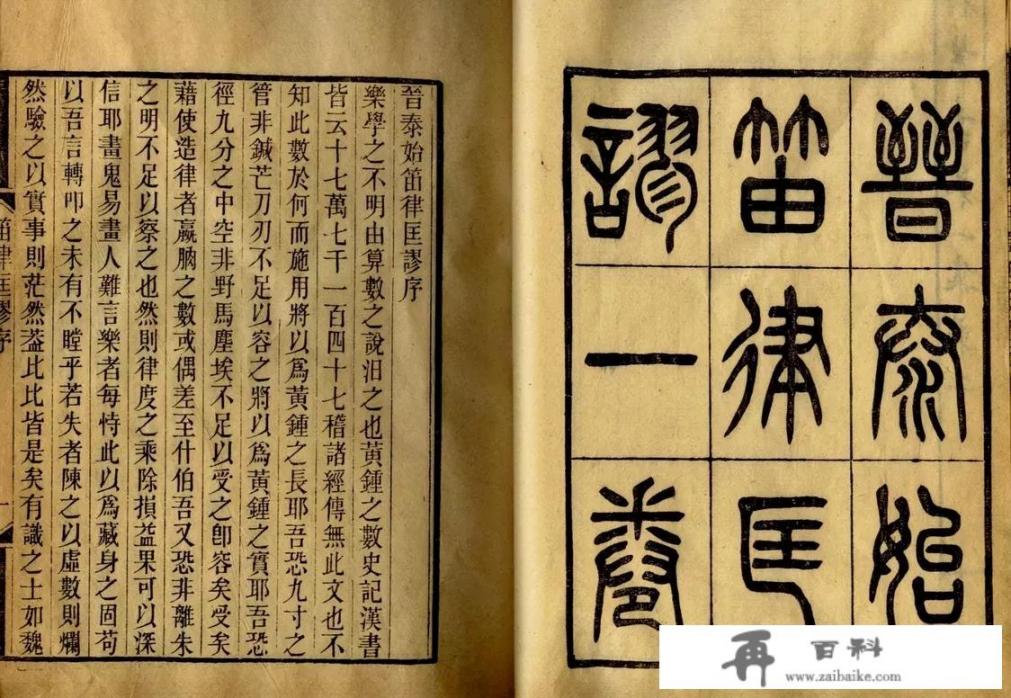 晉泰始
笛律匡
謬一卷
晉泰始笛律匡謬序
樂學之不明由算數之說汨之也黃鍾之數史記漢書
皆云十七萬七千一百四十七稽諸經傳無此文也不
知此數於何而施用將以爲黃鍾之長耶吾恐九寸之
管非鍼芒刀刃不足以容之將以爲黃鍾之實耶吾恐
徑九分之中空非野馬塵埃不足以受之卽容矣受矣
藉使造律者嬴朒之數或偶差至什伯吾又恐非離朱
之明不足以察之也然則律度之乘除損益果可以深
信耶畫鬼易畫人難言樂者每恃此以爲藏身之固苟
以吾言轉叩之未有不瞠乎若失者陳之以虛數則爛
然驗之以實事則茫然葢比比皆是矣有識之士如魏
笛律匡謬序
再百科
www.zaibaike.com